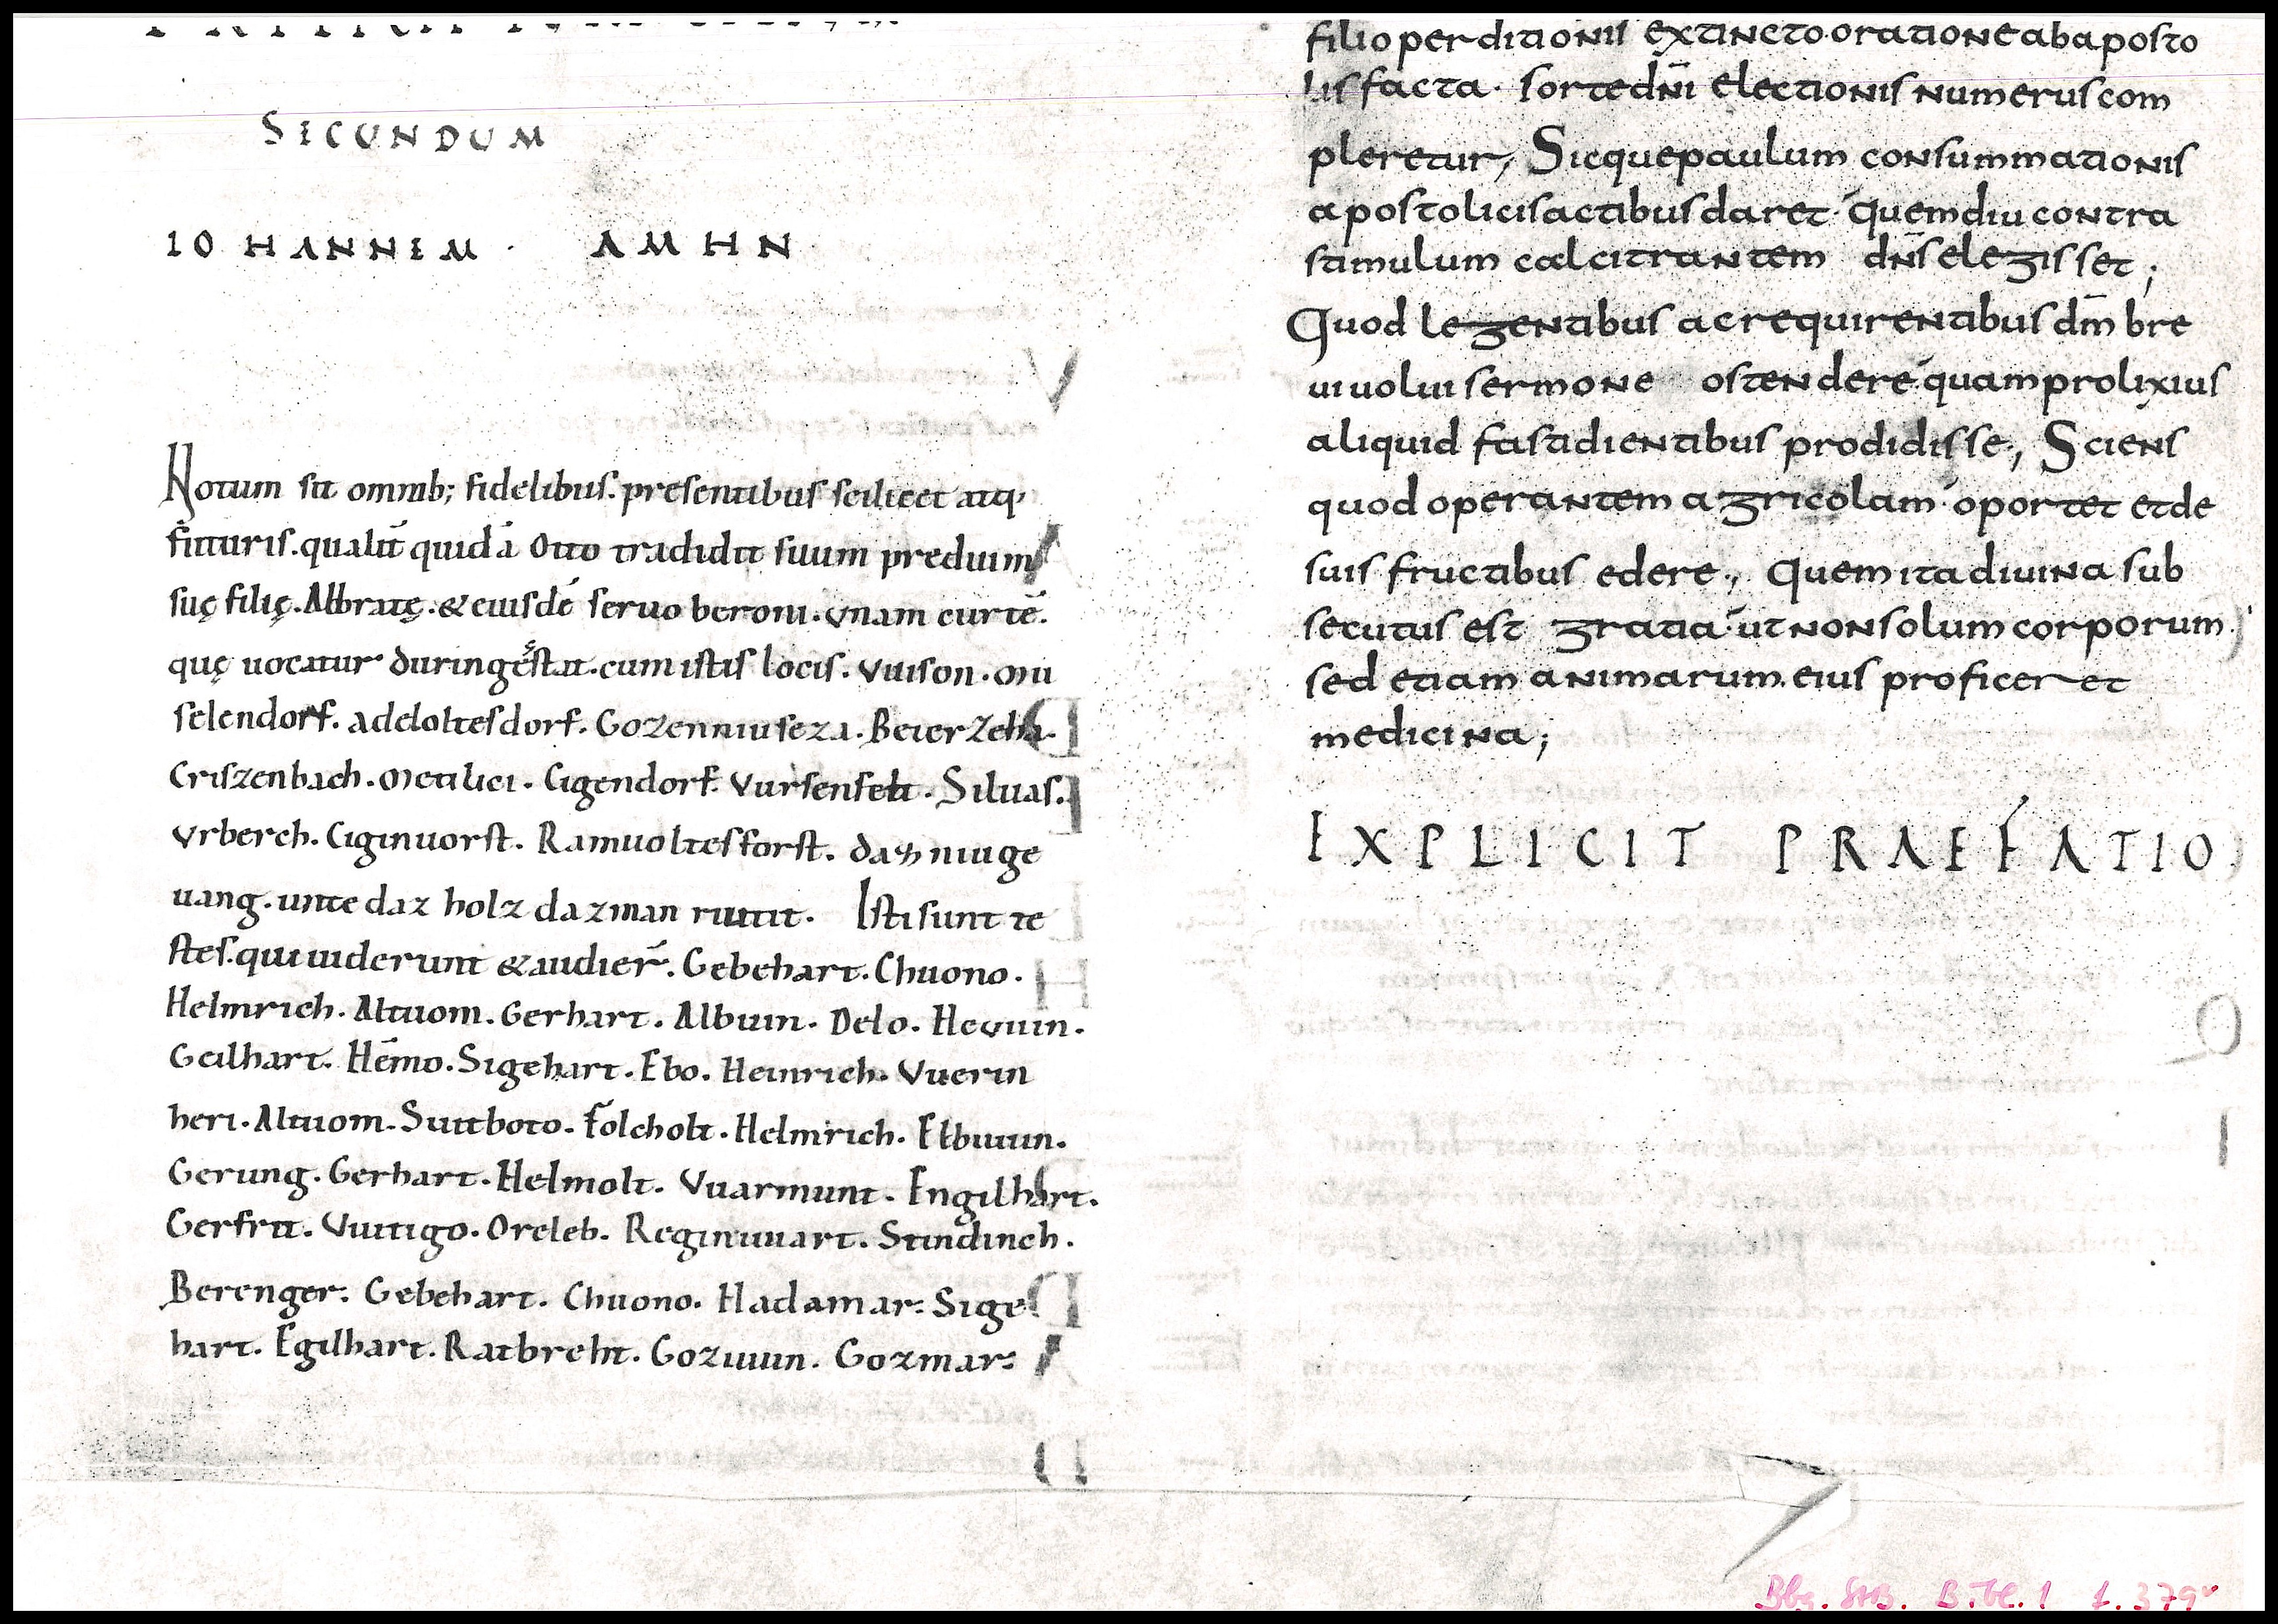 SECUNDUM
IOHANNEM · AMHN
Notum sit omnib; fidelibus. presentibus scilicet atq;
futuris. qualit̄ quidā Otto tradidit suum predium
suę filię. Albratę. & eiusdē seruo beroni. vnam curtē.
quę uocatur duringestat. cum istis locis. Vuison. Mu
selendorf. adeloltesdorf. Gozenniuseza. Beierzella.
Criszenbach. Metilici. Cigendorf. Vursenfelt. Siluas.
Vrberch. Ciginuorst. Ramuoltesforst. daz niuge
uang. unte daz holz daz man rutit. Isti sunt te
stes. qui uiderunt & audier̄. Gebehart. Chuono.
Helmrich. Altuom. Gerhart. Albuin. Delo. Hevuin.
Geilhart. Hēmo. Sigehart. Ebo. Heinrich. Vuerin
heri. Altuom. Suitboto. Folcholt. Helmrich. Elbuuin.
Gerung. Gerhart. Helmolt. Vuarmunt. Engilhart.
Gerfrit. Vuitigo. Orcleb. Reginuuart. Stindinch.
Berenger. Gebehart. Chuono. Hadamar. Sige
hart. Egilhart. Ratbreht. Gozuuin. Gozmar.
filio perditionis extincto· oratione ab aposto
lis facta· sorte dn̄i electionis numerus com
pleretur, Sicque paulum consummationis
apostolicis actibus daret· quem diu contra
stimulum calcitrantem dn̄s elegisset;
Quod legentibus ac requirentibus dm̄ bre
ui uolui sermone ostendere· quam prolixius
aliquid fastidientibus prodidisse; Sciens
quod operantem agricolam· oportet et de
suis fructibus edere; Quem ita diuina sub
secutus est gratia· ut non solum corporum
sed etiam animarum. eius proficeret
medicina;
EXPLICIT PRAEFATIO
Bbg. StB. B.ibl. 1 f. 379v